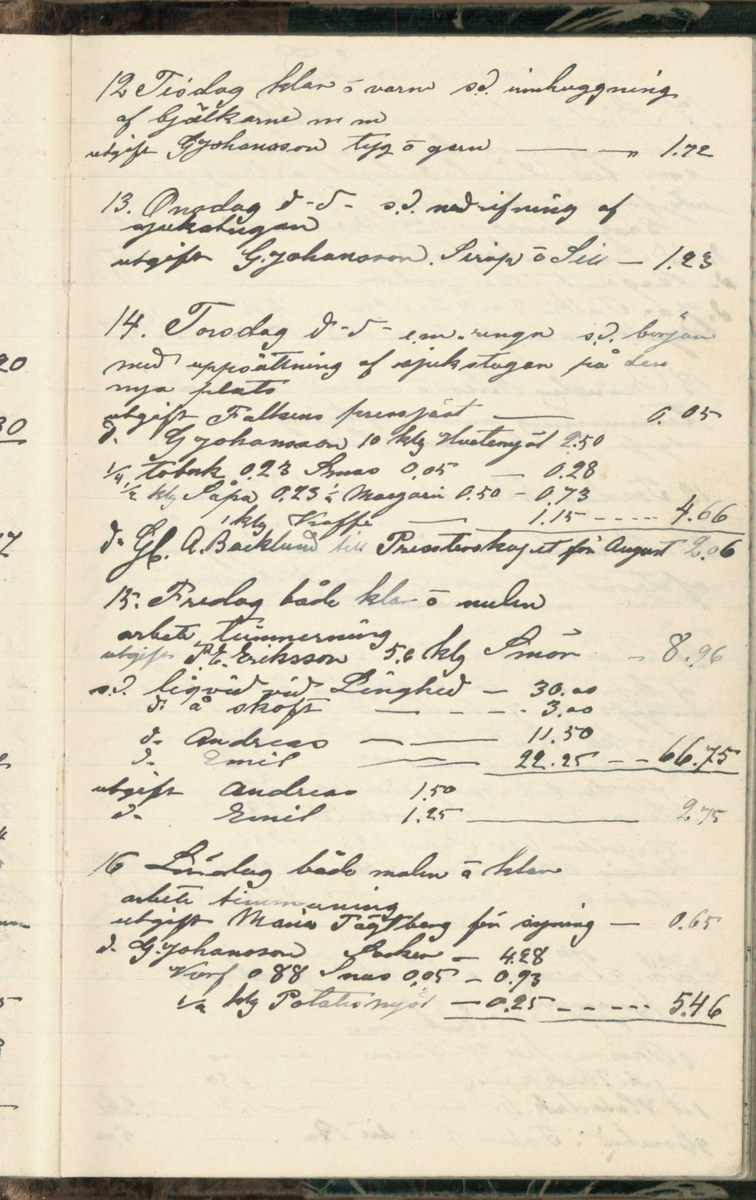 12 Tisdag klar ō varm s.d. inhuggning
af bjälkarne m m
utgift G Johansson tyg ō garn — „ 1.72
13. Onsdag d-o- s.d. nedrifning af
sjukstugan
utgift G. Johansson. Sirap ō Sill — 1.23
14. Torsdag d-o- e.m. regn s.d. början
med uppsättning af sjukstugan på dess
nya plats
utgift Falkens pressjäst — 0.05
d. G Johansson 10 klg Hvetemjöl 2.50
1/4 tobak 0.23 Snus 0.05 — 0.28
1/2 klg Såpa 0.23 1/2 Margarin 0.50 - 0.73
1 klg Kaffe — 1.15 - - - - 4.66
d. A. Backlund till Presterskapet för August 2.06
15. Fredag både klar ō mulen
arbete, timmerning
utgift P. E. Eriksson 5.6 klg Smör — 8.96
s.d. liqvid vid Linghed — 30.00
d. å skoft — - - - 3.00
d. Andreas — — 11.50
d. Emil — — 22.25 - - 66.75
utgift Andreas 1.50
d. Emil 1.25 — 2.75
16 Lördag både mulen ō klar
arbete timmerning
utgift Maria Tägtberg för syning — 0.65
d. G. Johansson Socker — 4.28
Korf 0.88 Snus 0.05 — 0.93
1/2 klg Potatismjöl — 0.25 - - - - - 5.46
20
30